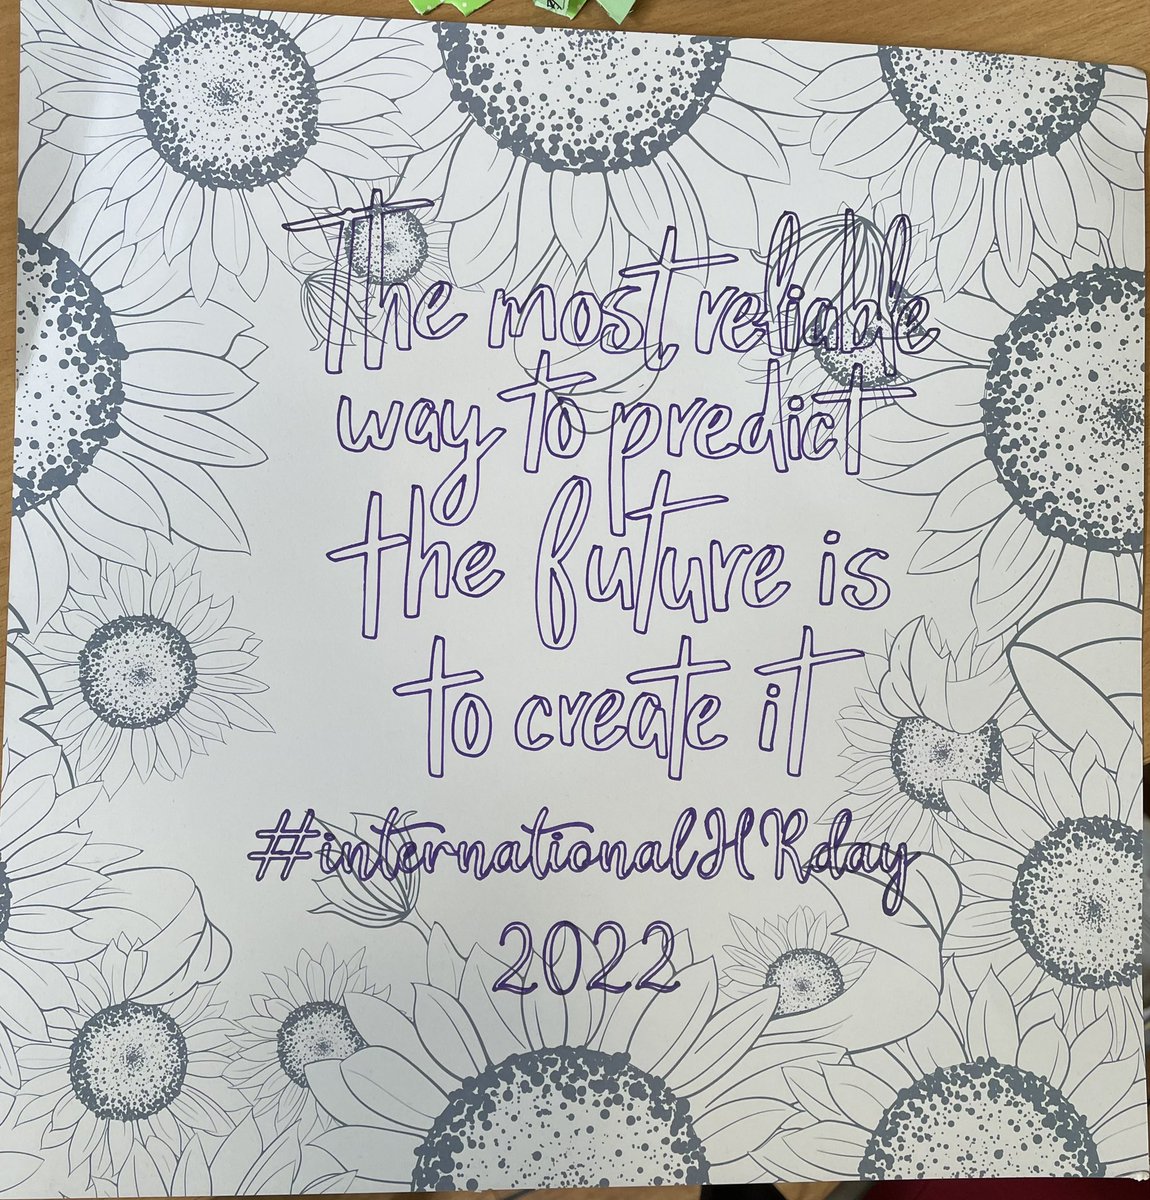 The most reliable
way to predict
the future is
to create it
#internationalHRday
2022